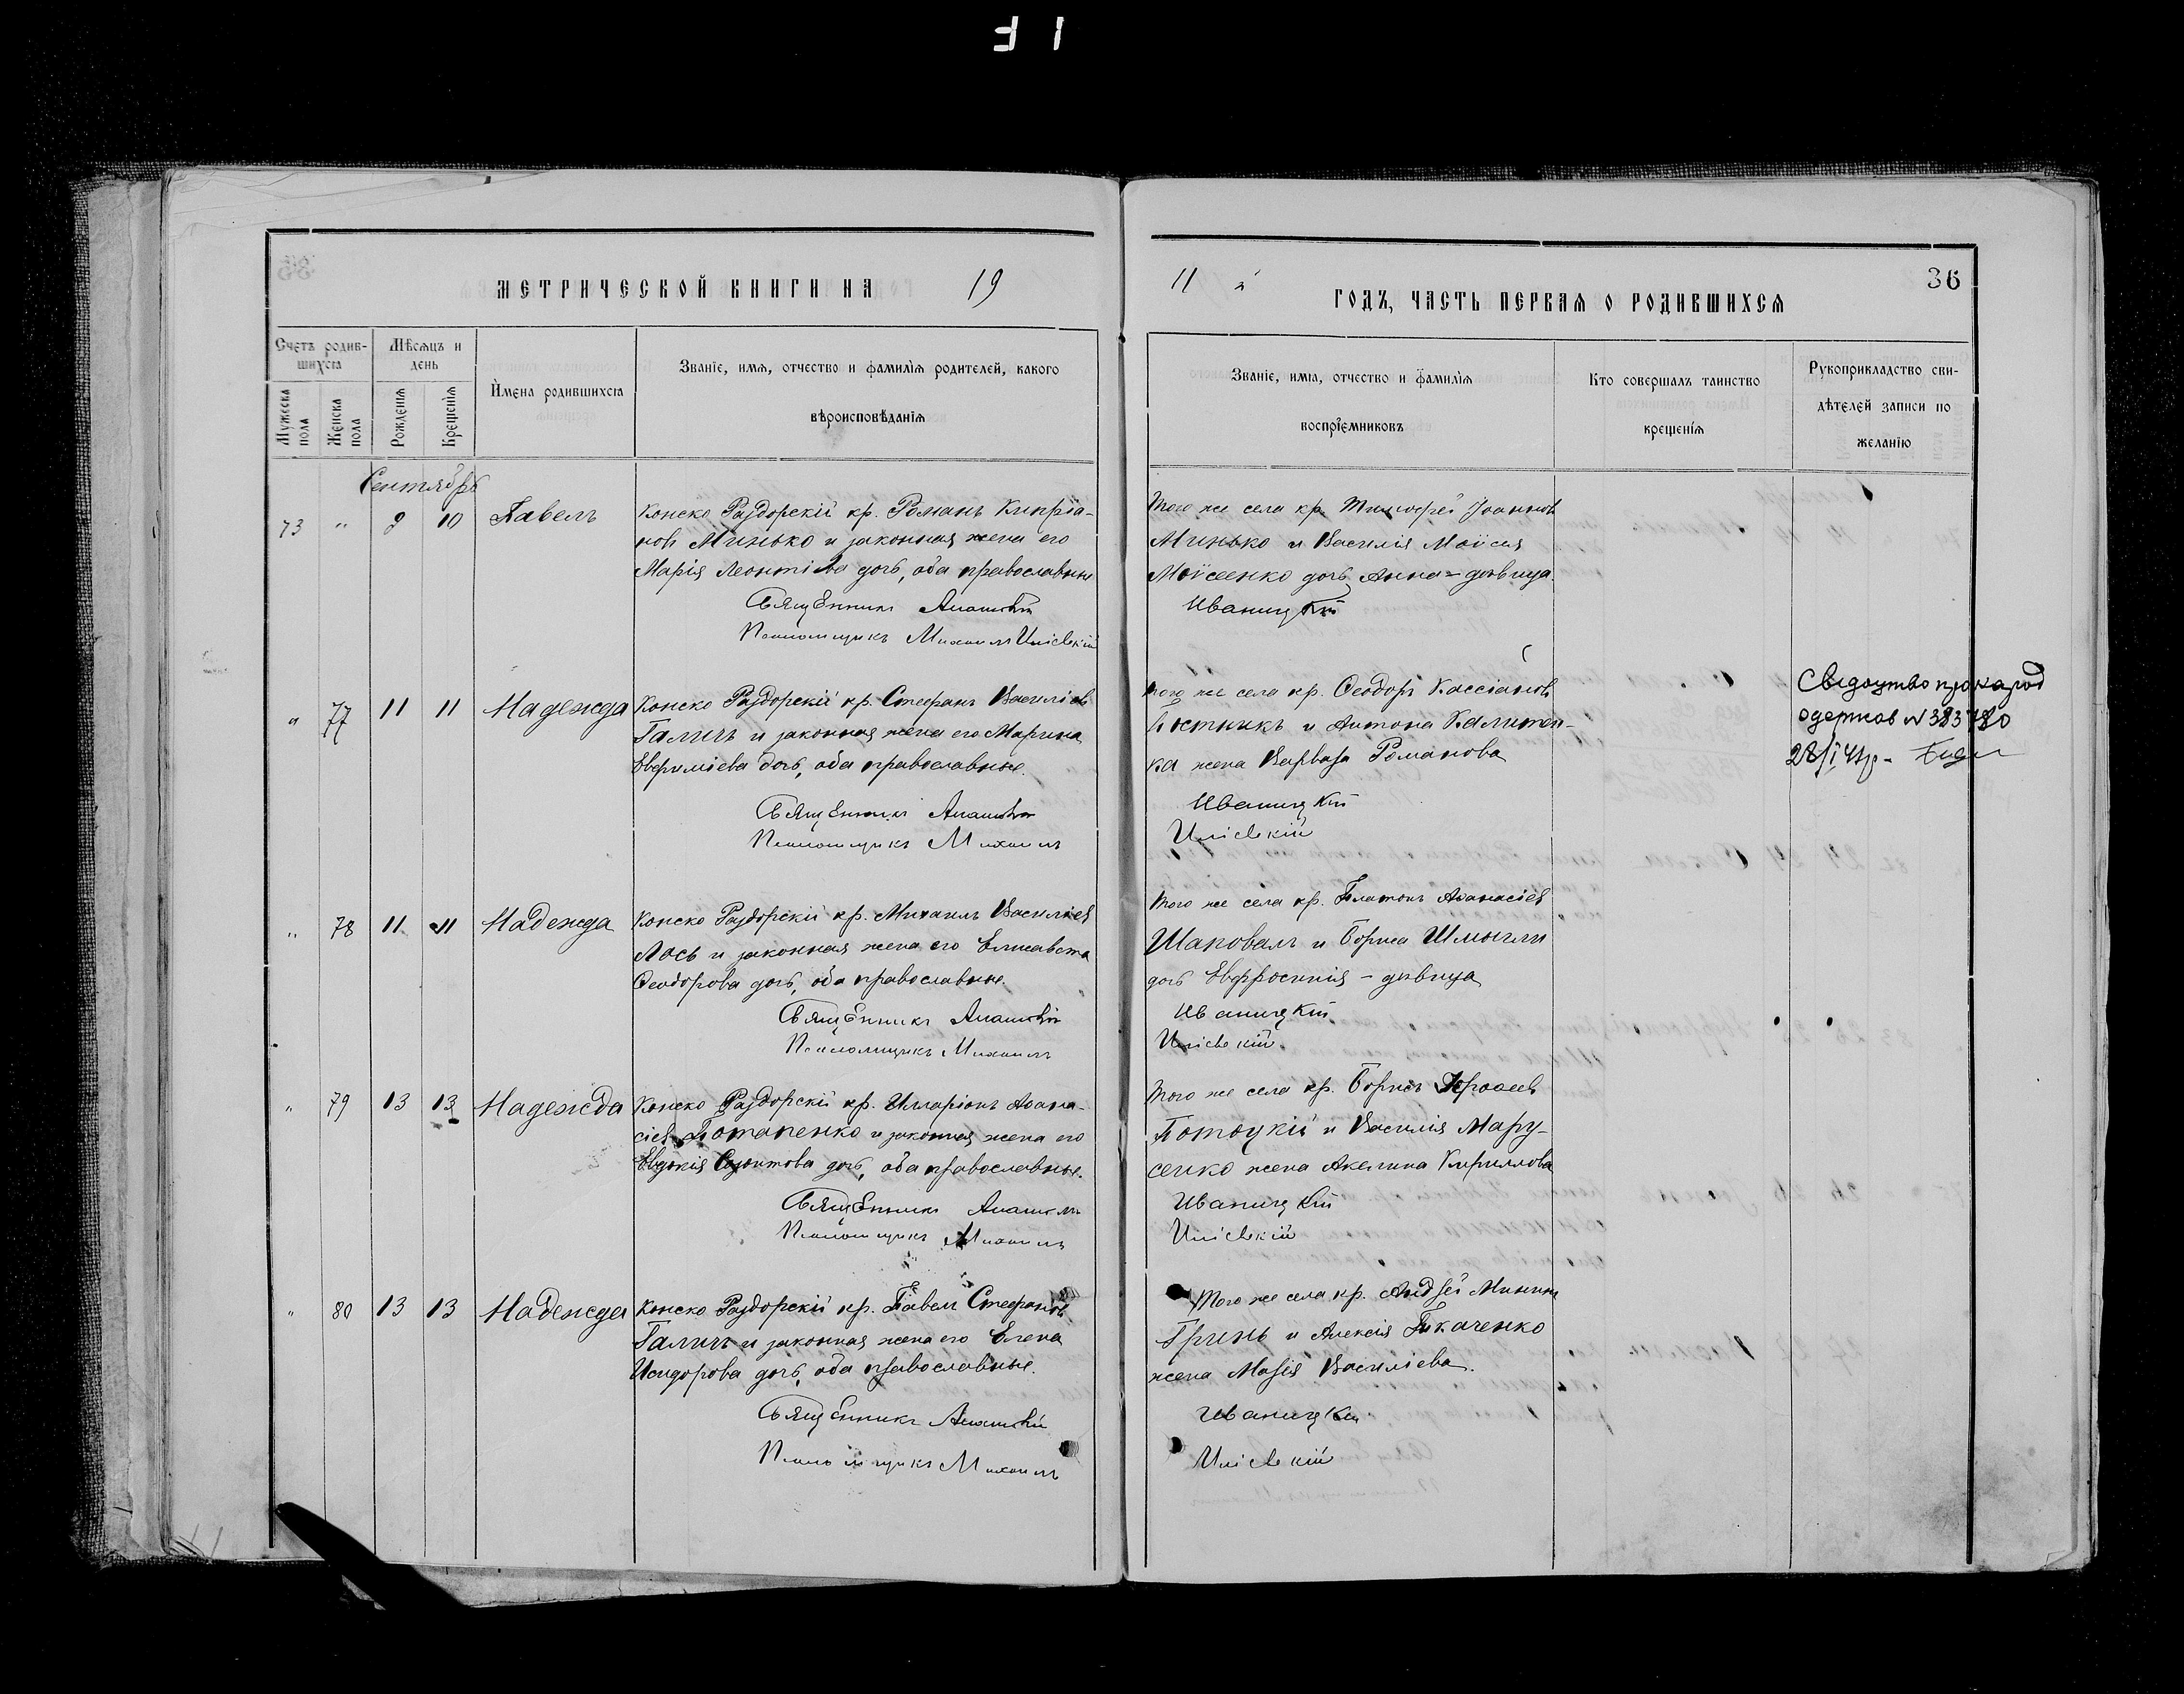 МЕТРИЧЕСКОЙ КНИГИ НА 19
11 й ГОДЪ, ЧАСТЬ ПЕРВАЯ О РОДИВШИХСЯ
36
Счетъ родив-
шихся
Мѣсяцъ и
день
Мужеска
пола
Женска
пола
Рожденія
Крещенія
Имена родившихся
Званіе, имя, отчество и фамилія родителей, какого
вѣроисповѣданія
Званіе, имя, отчество и фамилія
воспріемниковъ
Кто совершалъ таинство
крещенія
Рукоприкладство сви-
дѣтелей записи по
желанію
Сентябрь
73 " 9 10 Павелъ
Конско Раздорскій кр. Романъ Кипріа-
новъ Минько и законная жена его
Марія Леонтіева дочь, оба православные
Священникъ
Псаломщикъ Михаилъ Иліевкій
Того же села кр. Тимофей Іоанновъ
Минько и Василія Моисея
Моисеенко дочь Анна = дѣвица.
Иваницкій
" 77 11 11 Надежда
Конско Раздорскій кр. Стефанъ Василіевъ
Галичъ и законная жена его Марина
Евфиміева дочь, оба православные.
Священникъ
Псаломщикъ Михаилъ
Того же села кр. Ѳеодоръ Кассіановъ
Костникъ и Антона Калитен-
ка жена Варвара Романова
Иваницкій
Иліевкій
Свидоцтво про народ
одержав N 383780
28/I 41р -
" 78 11 11 Надежда
Конско Раздорскій кр. Михаилъ Василіевъ
Лось и законная жена его Елисавета
Ѳеодорова дочь, оба православные.
Священникъ
Псаломщикъ Михаилъ
Того же села кр. Платонъ Аѳанасіевъ
Шаповалъ и Бориса Шмыгли
дочь Евфросинія - дѣвица
Иваницкій
Иліевкій
" 79 13 13 Надежда
Конско Раздорскій кр. Илларіонъ Аѳана-
сіевъ Потапенко и законная жена его
Евдокія дочь, оба православные.
Священникъ
Псаломщикъ Михаилъ
Того же села кр. Борисъ
Потоцкій и Василія Мару-
сенко жена Акилина Кириллова
Иваницкій
Иліевкій
" 80 13 13 Надежда
Конско Раздорскій кр. Павелъ Стефановъ
Галичъ и законная жена его Елена
Исидорова дочь, оба православные.
Священникъ
Псаломщикъ Михаилъ
Того же села кр. Андрей Мининъ
Гринь и Алексія Ткаченко
жена Марія Василіева.
Иваницкій
Иліевкій